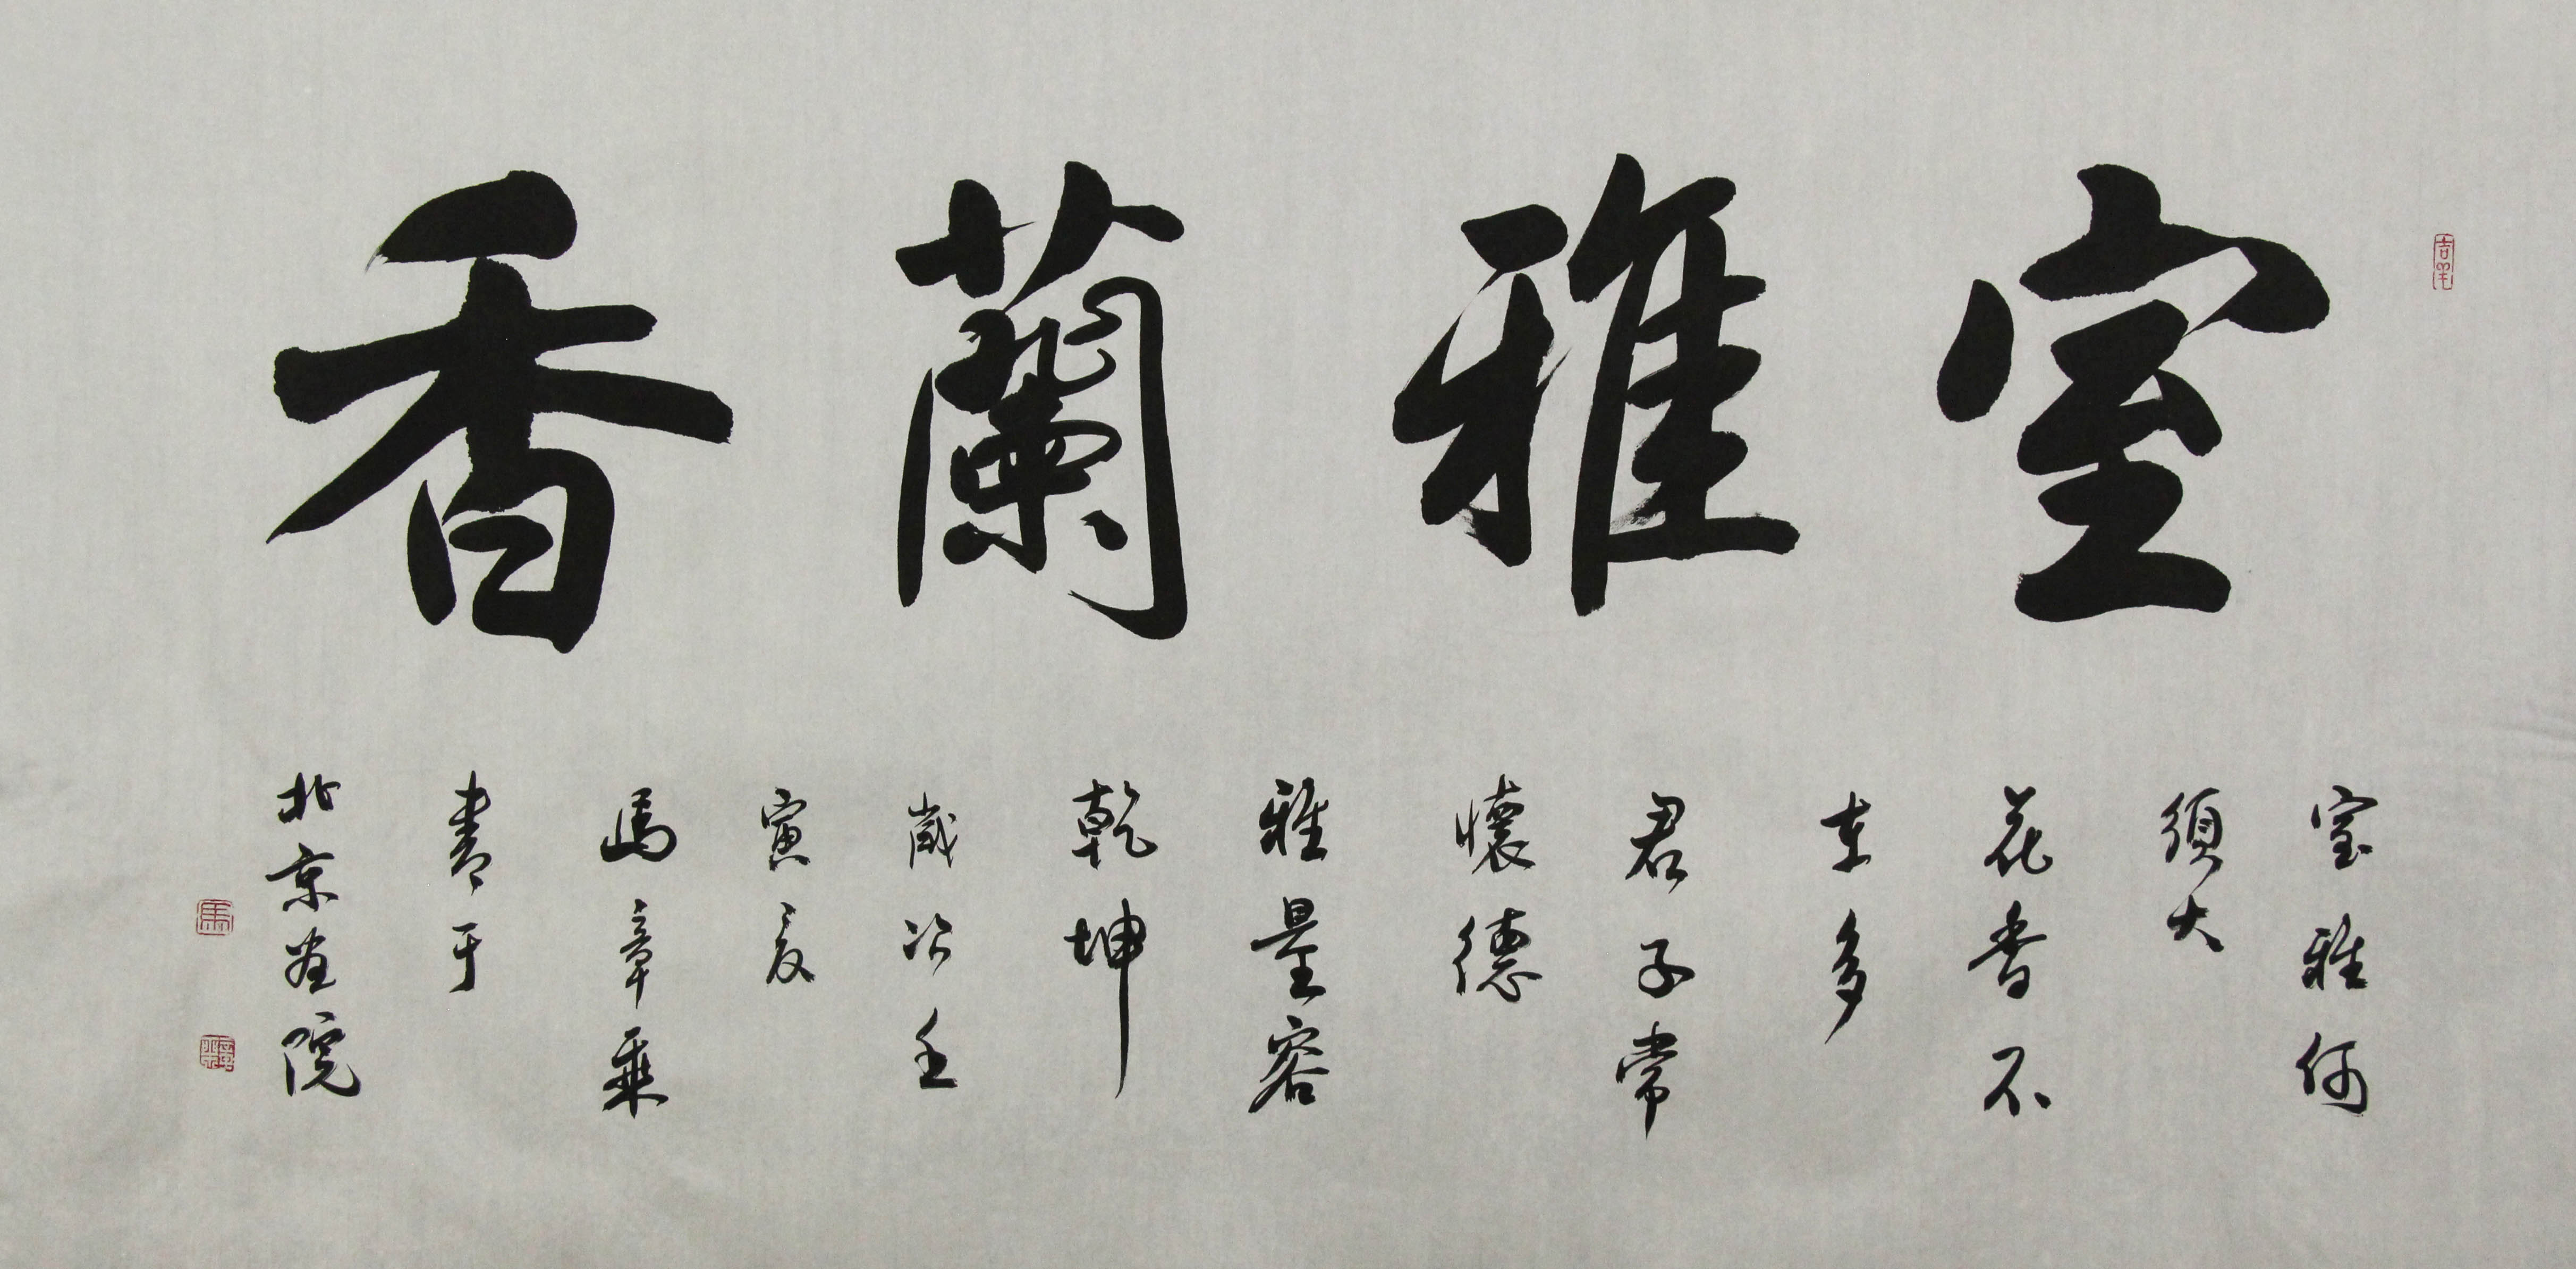 室雅蘭香
室雅何
須大
花香不
在多
君子常
懷德
雅量容
乾坤
歲次壬
寅夏
馬章乘
書于
北京畫院